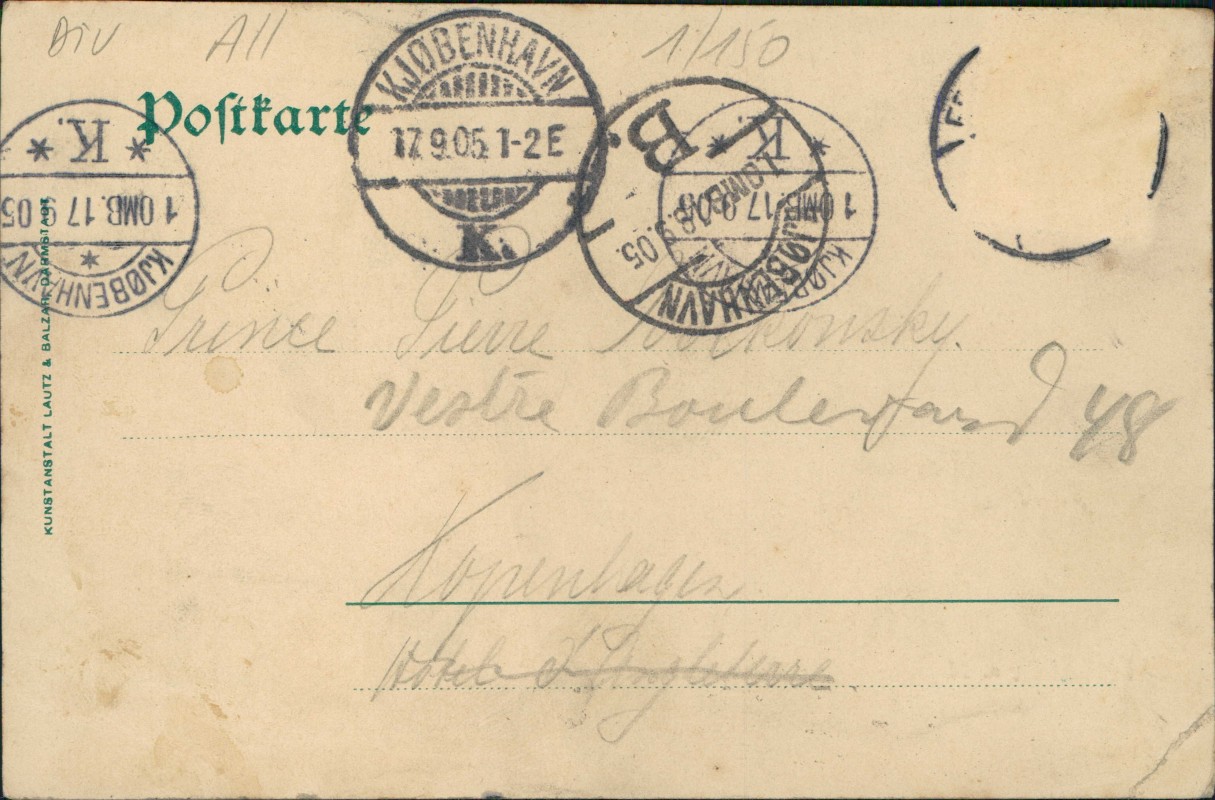 Div All 1/150
Postkarte
KJØBENHAVN
17.9.05. 1-2 E
K.
* K. *
1 OMB. 17 9 05
*
KJØBENHAVN
B.
1.OMB. 18.9.05
KJØBENHAVN
* K. *
1 OMB. 17 9 05
KJØBENHAVN
Prince Pierre Wolkonsky.
Vestre Boulevard 48
Kopenhagen
Hotel d'Angleterre
KUNSTANSTALT LAUTZ & BALZAR, DARMSTADT